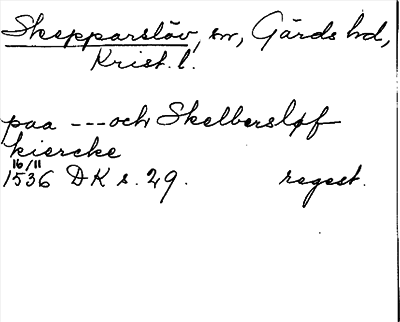 Skepparslöv, sn, Gärds hd,
Krist. l.
paa --- och Skelbersløf
kiercke
16/11
1536 DK s. 29. regest.